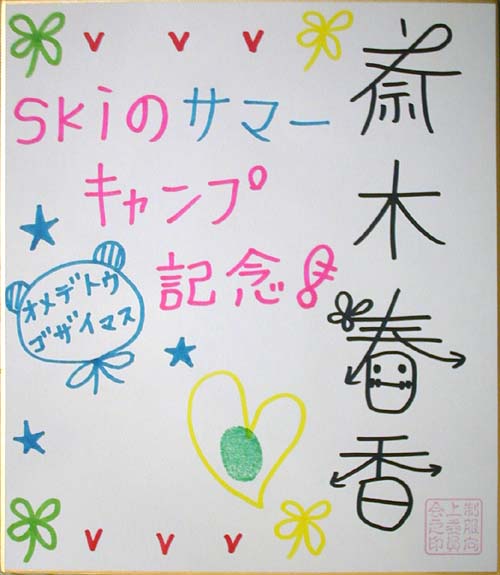 SKiのサマー
キャンプ
記念!
オメデトウ
ゴザイマス
斎木春香
制服向
上委員
会之印